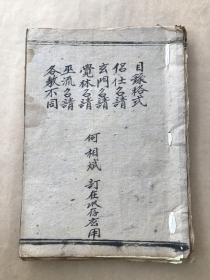 目錄格式
侶仕名請
玄門名請
覺林名請
巫流名請
各教不同
何相斌 訂在 存宏用